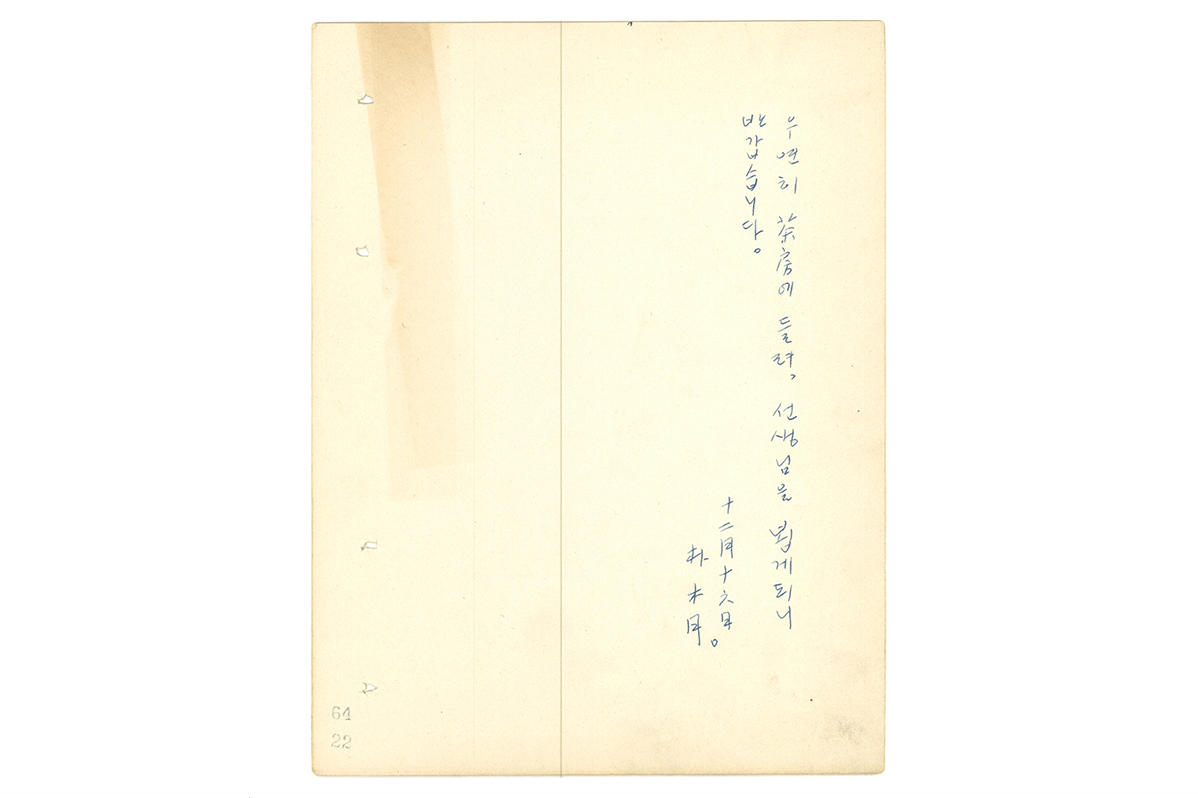 우연히 茶房에 들려, 선생님을 뵙게되니
반갑습니다。
十二月十六日。
朴木月
64
22